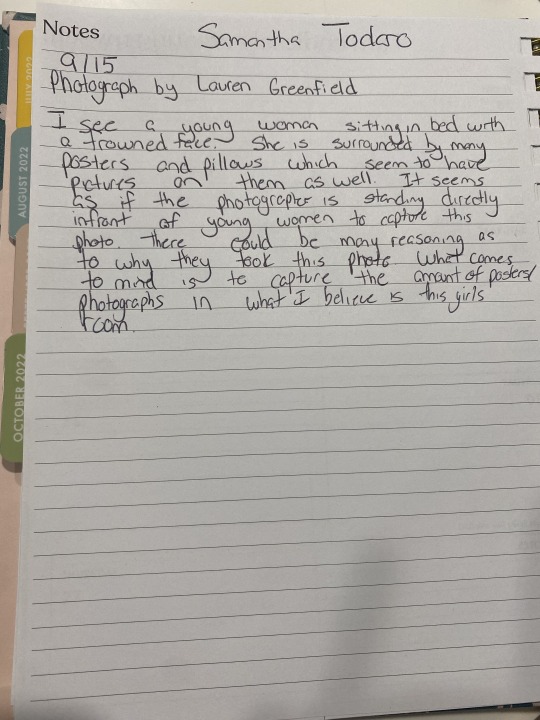 Notes
Samantha Todaro
9/15
Photograph by Lauren Greenfield
I see a young woman sitting in bed with
a frowned face. She is surrounded by many
posters and pillows which seem to have
pictures on them as well. It seems
as if the photographer is standing directly
infront of young women to capture this
photo. There could be many reasoning as
to why they took this photo. What comes
to mind is to capture the amount of posters/
photographs in what I believe is this girls
room.
JULY 2022
AUGUST 2022
OCTOBER 2022